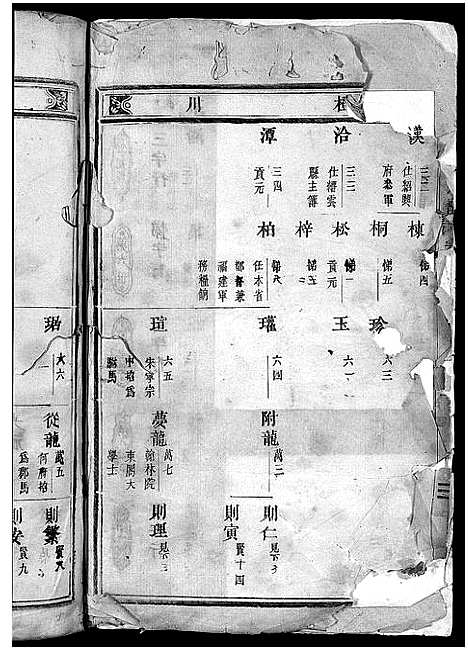 川
漢
三二
仕紹興
府叅軍
洽
三三
仕縉雲
縣主簿
潭
三四
貢元
棟
悌四
桐
悌五
松
悌一
貢元
梓
悌五
柏
悌八
任本省
都督兼
福建軍
務糧餉
珍
六三
玉
六一
瓘
六四
瑄
六五
朱家宗
甲招為
駙馬
瑒
六六
附龍
萬三
夢龍
萬七
翰林院
東閣大
學士
從龍
萬五
何府招
為郡馬
則仁
見下
則寅
賢十四
則理
見下三
則繁
賢八
則安
賢九